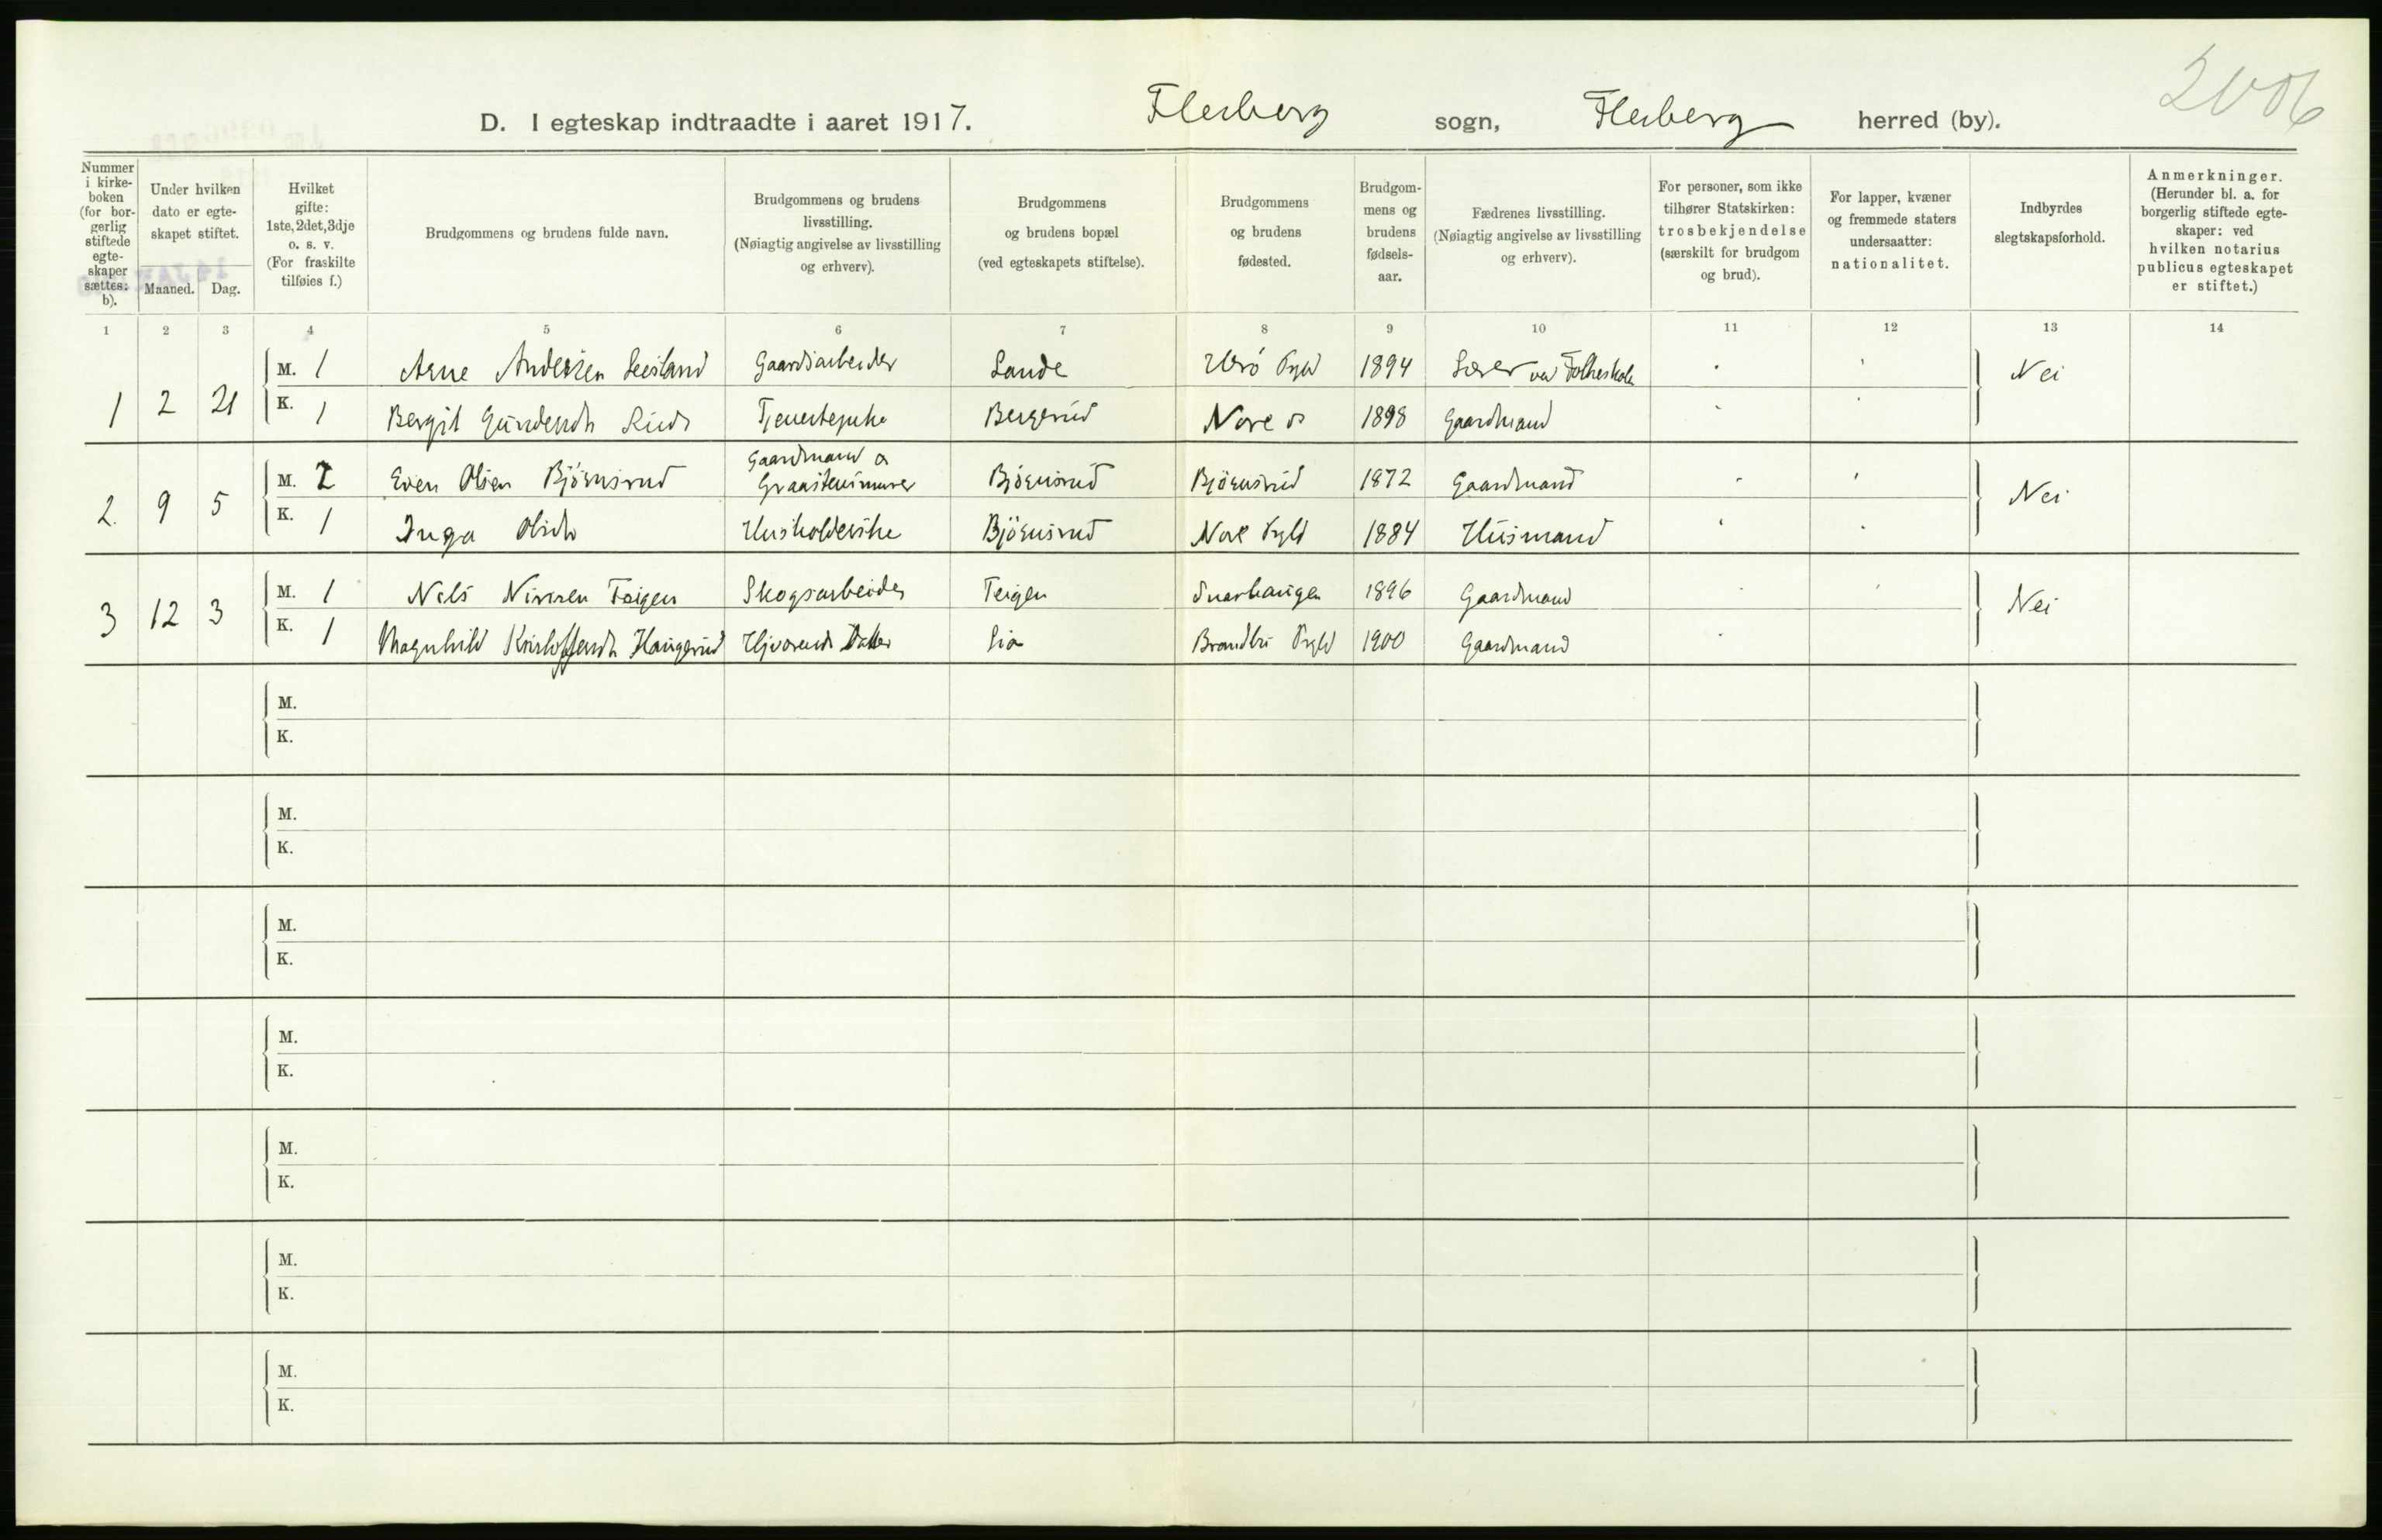 D. I egteskap indtraadte i aaret 1917. Flesberg sogn, Flesberg herred (by).
Nummer i kirkeboken (for borgerlig stiftede egteskaper sættes: b).
Under hvilken dato er egteskapet stiftet.
Maaned. Dag.
Hvilket gifte: 1ste, 2det, 3dje o. s. v. (For fraskilte tilføies f.)
Brudgommens og brudens fulde navn.
Brudgommens og brudens livsstilling. (Nøiagtig angivelse av livsstilling og erhverv).
Brudgommens og brudens bopæl (ved egteskapets stiftelse).
Brudgommens og brudens fødested.
Brudgommens og brudens fødselsaar.
Fædrenes livsstilling. (Nøiagtig angivelse av livsstilling og erhverv).
For personer, som ikke tilhører Statskirken: trosbekjendelse (særskilt for brudgom og brud).
For lapper, kvæner og fremmede staters undersaatter: nationalitet.
Indbyrdes slegtskapsforhold.
Anmerkninger. (Herunder bl. a. for borgerlig stiftede egteskaper: ved hvilken notarius publicus egteskapet er stiftet.)
1 2 3 4 5 6 7 8 9 10 11 12 13 14
1 2 21 M. 1 Arne Andersen Gaardsarbeider Lande 1894 Lærer ved Folkeskole Nei
K. 1 Bergit Gundersdtr Ruud Tjenestepike Bergerud Nore 1898 Gaardmand
2. 9 5 M. 2 Even Olsen Bjørnsrud Gaardmand & Graastensmurer Bjørnsrud Bjørnsrud 1872 Gaardmand Nei
K. 1 Inga Olsdtr Husholderske Bjørnsrud Nore Pgld 1884 Husmand
3 12 3 M. 1 Nils Nirisen Teigen Skogsarbeider Teigen 1896 Gaardmand Nei
K. 1 Magnhild Kristoffersdtr Haugerud Hjemmev. Datter Lia Brandbu Pgld 1900 Gaardmand
M.
K.
M.
K.
M.
K.
M.
K.
M.
K.
M.
K.
M.
K.